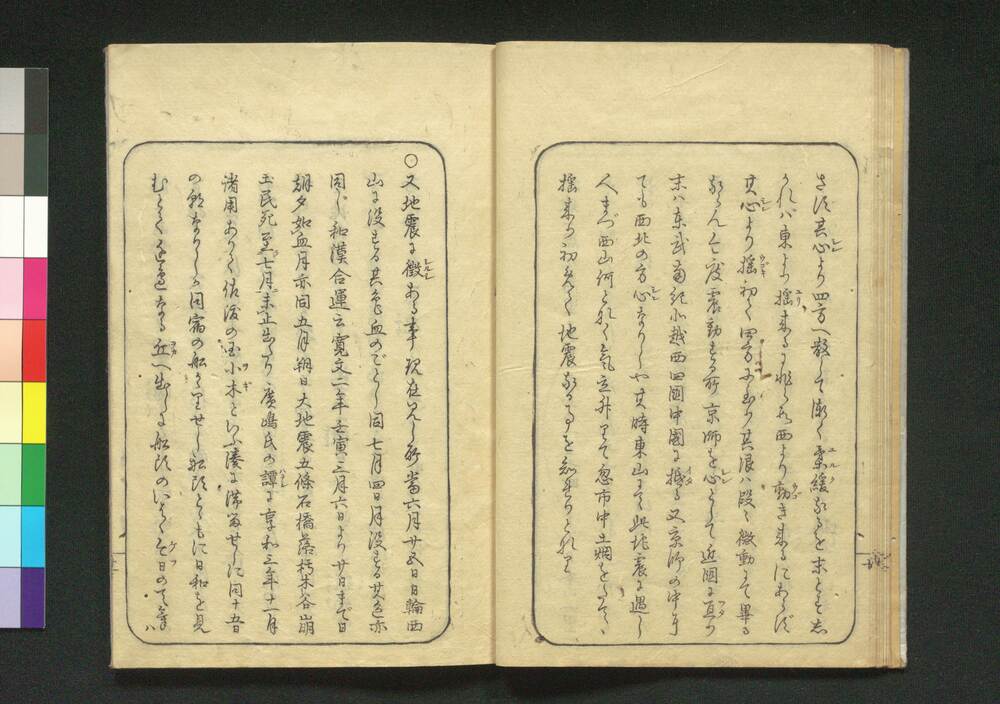 さす其心より四方へ散して漸々柔緩なるを末とす志
かれハ東より揺来るにあらす西より動き来るにあらす
其心より揺初て四方に至り其限ハ段々微動にて畢る
なるへし今度震動する所京師を心として近国に亘り
末ハ東武南紀北越西四国中国に抵る又京師の中にても
ても西北の方心なりしや其時東山にて此地震に遇し
人まつ西山何となく気立升りて忽市中土烟をたて、
揺来り初めて地震なる事を知りしとなり
○又地震に徴ある事現在見し所当六月廿五日日輪西
山に没する其色血のことし同七月四日月没する其色亦
同し和漢合運云寛文二年壬寅三月六日より廿日まで日
朝夕如血月亦同五月朔日大地震五條石橋落朽木谷崩
土民死至七月未止とあり広嶋氏の譚に享和三年十一月
諸用ありて佐渡の国小木といふ湊に滞留せしに同十五日
の朝なりしか同宿の船かゝりせし船頭とともに日和を見
むとて近辺なる丘へ出しに船頭のいはく今日の天気ハ